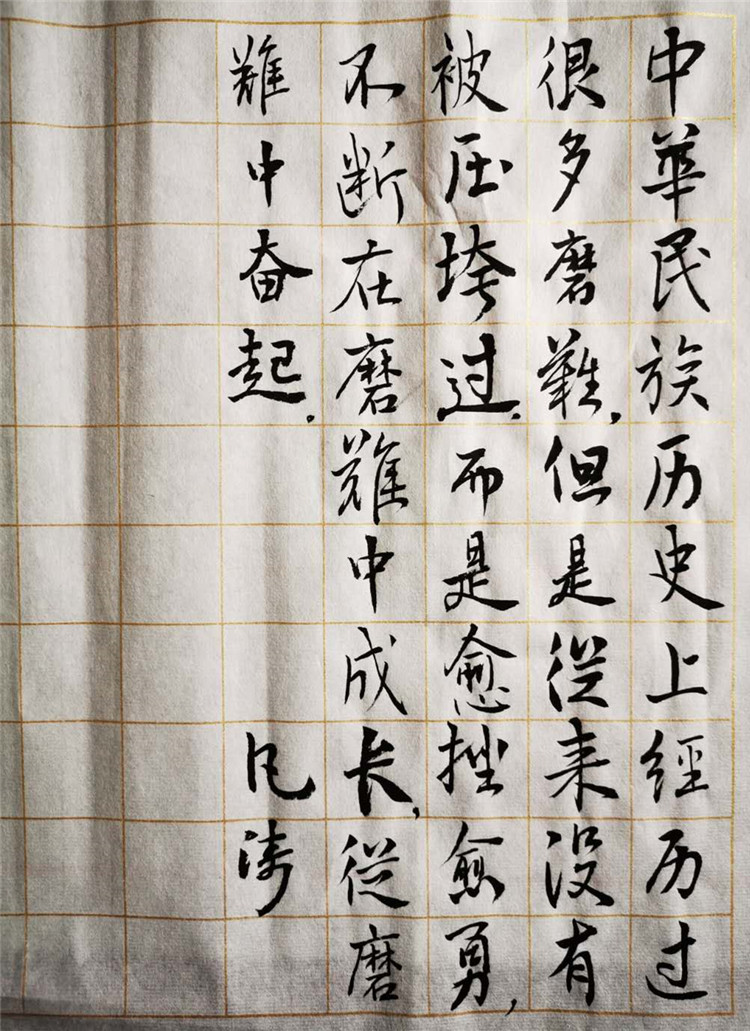 中華民族历史上經历过
很多磨難,但是從来没有
被压垮过,而是愈挫愈勇,
不断在磨難中成长,從磨
難中奋起.
凡涛